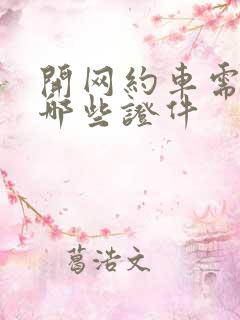 開网約車需
哪些證件
葛浩文